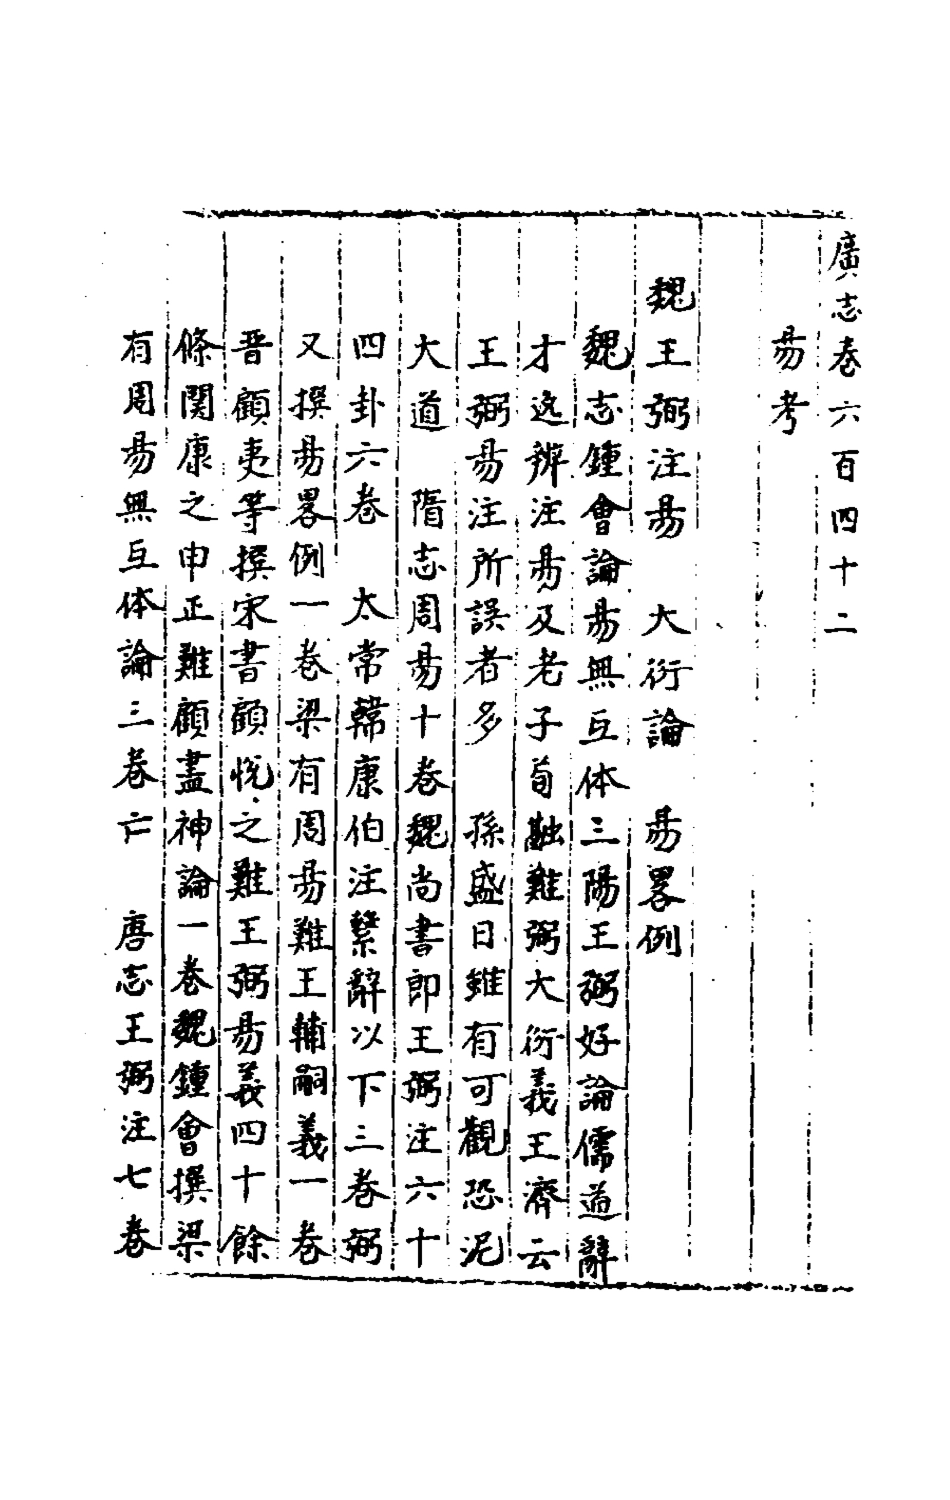 廣志卷六百四十二
易考
魏王弼注易　大衍論　易畧例
魏志鍾會論易無互体三陽王弼好論儒道辭
才逸辨注易及老子荀融難弼大衍義王濟云
王弼易注所誤者多　孫盛曰雖有可觀恐泥
大道　隋志周易十卷魏尚書郎王弼注六十
四卦六卷　太常韓康伯注繫辭以下三卷弼
又撰易畧例一卷梁有周易難王輔嗣義一卷
晋顧夷等撰宋書顧悅之難王弼易義四十餘
條関康之申正難顧盡神論一卷魏鍾會撰梁
有周易無互体論三卷亡　唐志王弼注七卷